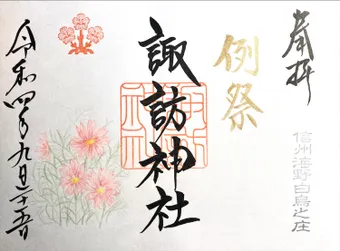 奉拝
信州海野白鳥之庄
例祭
諏訪神社
令和四年九月二十五日